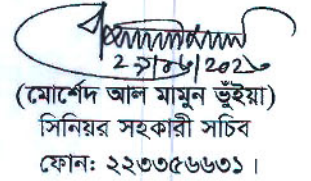 (মোর্শেদ আল মামুন ভূঁইয়া)
সিনিয়র সহকারী সচিব
ফোন: ২২৩৩৫৬৬৩১।